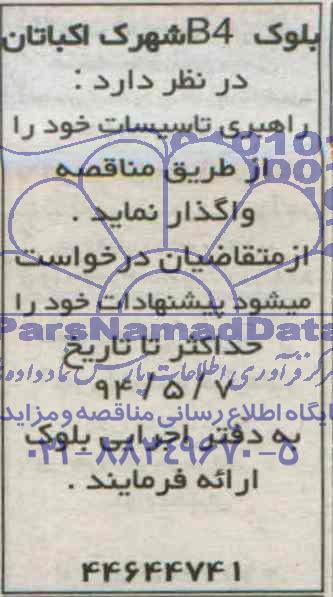 بلوک B4 شهرک اکباتان
در نظر دارد :
راهبری تاسیسات خود را
از طریق مناقصه
واگذار نماید .
ازمتقاضیان درخواست
میشود پیشنهادات خود را
ParsNamadData
حداکثر تا تاریخ
مرکز فرآوری اطلاعات پارس نماد داده
۹۴/۵/۷
پایگاه اطلاع رسانی مناقصه و مزایده
به دفتر اجرایی بلوک
۰۲۱-۸۸۲۴۹۶۷۰-۵
ارائه فرمایند .
۴۴۶۴۴۷۴۱